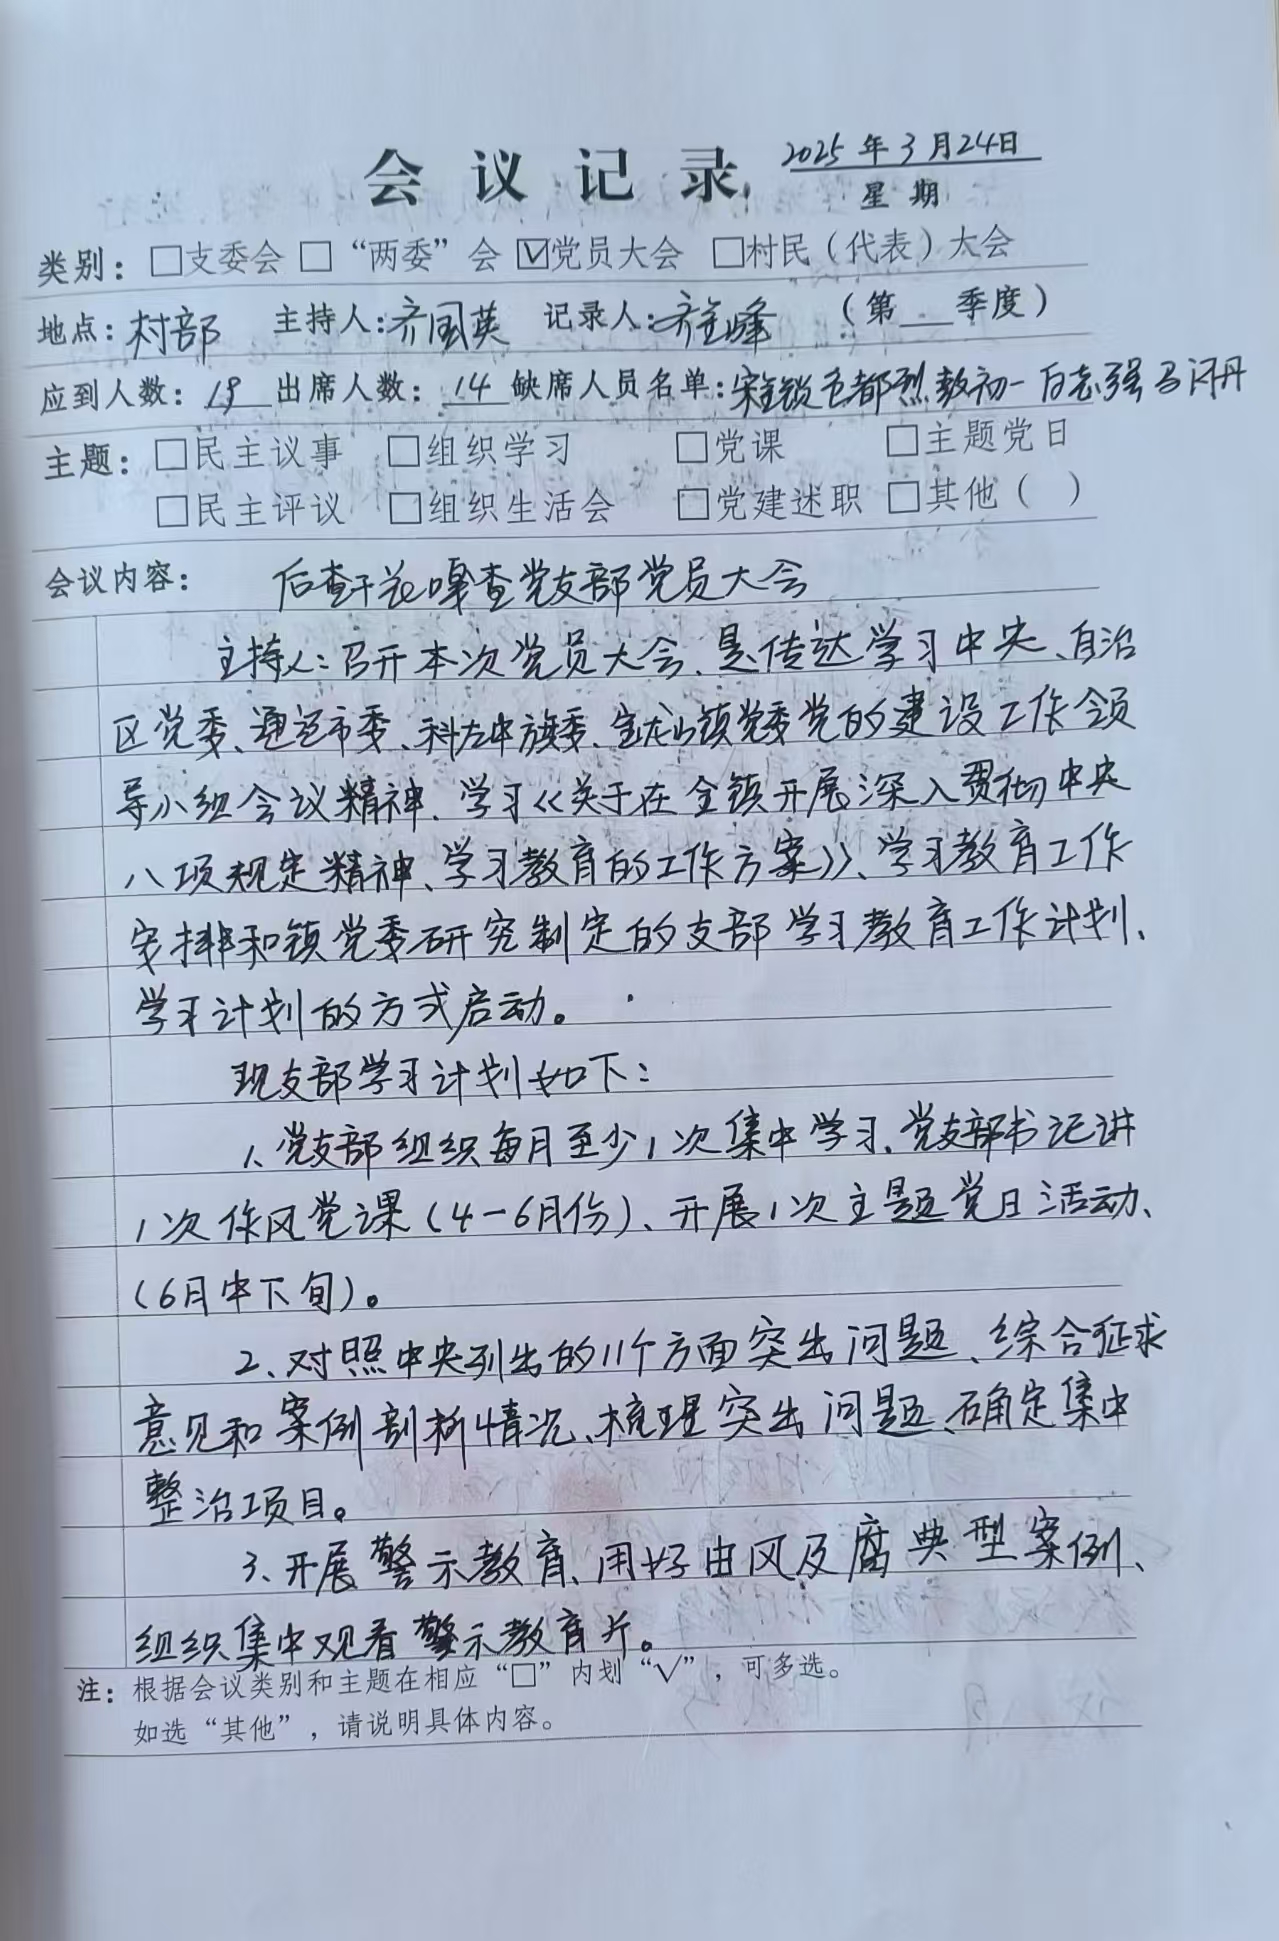 会议记录 2025年3月24日
星期
类别：□支委会 □“两委”会 ☑党员大会 □村民（代表）大会
地点：村部 主持人：齐国英 记录人：齐全峰 （第 季度）
应到人数：19 出席人数：14 缺席人员名单：宋金锁 包都烈 敖初一 白志强 马闪丹
主题：□民主议事 □组织学习 □党课 □主题党日
□民主评议 □组织生活会 □党建述职 □其他（ ）
会议内容： 后查干花嘎查党支部党员大会
主持人：召开本次党员大会、是传达学习中央、自治
区党委、通辽市委、科左中旗委、宝龙山镇党委党的建设工作领
导小组会议精神、学习《关于在全镇开展深入贯彻中央
八项规定精神、学习教育的工作方案》、学习教育工作
安排和镇党委研究制定的支部学习教育工作计划、
学习计划的方式启动。
现支部学习计划如下：
1、党支部组织每月至少1次集中学习、党支部书记讲
1次作风党课（4－6月份）、开展1次主题党日活动、
（6月中下旬）。
2、对照中央列出的11个方面突出问题、综合征求
意见和案例剖析情况、梳理突出问题、确定集中
整治项目。
3、开展警示教育、用好由风及腐典型案例、
组织集中观看警示教育片。
注：根据会议类别和主题在相应“□”内划“√”，可多选。
如选“其他”，请说明具体内容。